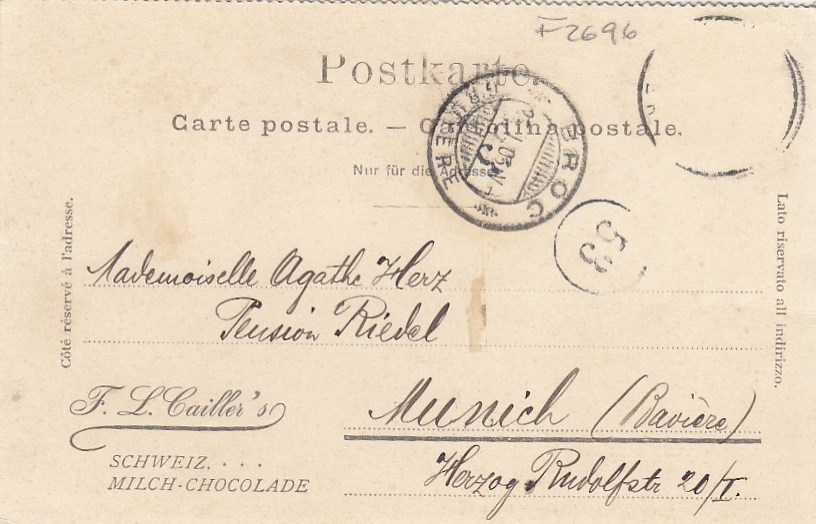 F2696
Postkarte.
Carte postale. — Cartolina postale.
Nur für die Adresse.
BROC
GRUYERE
53
Côté réservé à l'adresse.
Lato riservato all indirizzo.
Mademoiselle Agathe Herz
Pension Riedel
F. L. Cailler's
Munich (Bavière)
SCHWEIZ. . . .
MILCH-CHOCOLADE
Herzog Rudolfstr 20/I.